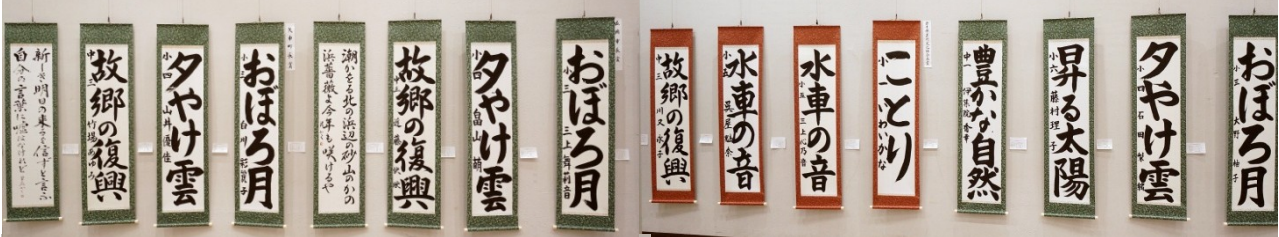 新しき明日の来るを信ずと言ふ
自分の言葉に嘘はなけれど
故郷の復興
中三
夕やけ雲
小四
おぼろ月
小三
潮かをる北の浜辺の砂山のかの
浜薔薇よ今年も咲けるや
故郷の復興
夕やけ雲
小四 畠山 萌
おぼろ月
小三 三上舞莉音
故郷の復興
中三 川又
水車の音
小五
水車の音
小五 三上心乃音
ことり
小一
豊かな自然
中一 伊集院
昇る太陽
小六 藤村理子
夕やけ雲
小四 石田
おぼろ月
小三 大野 柚子